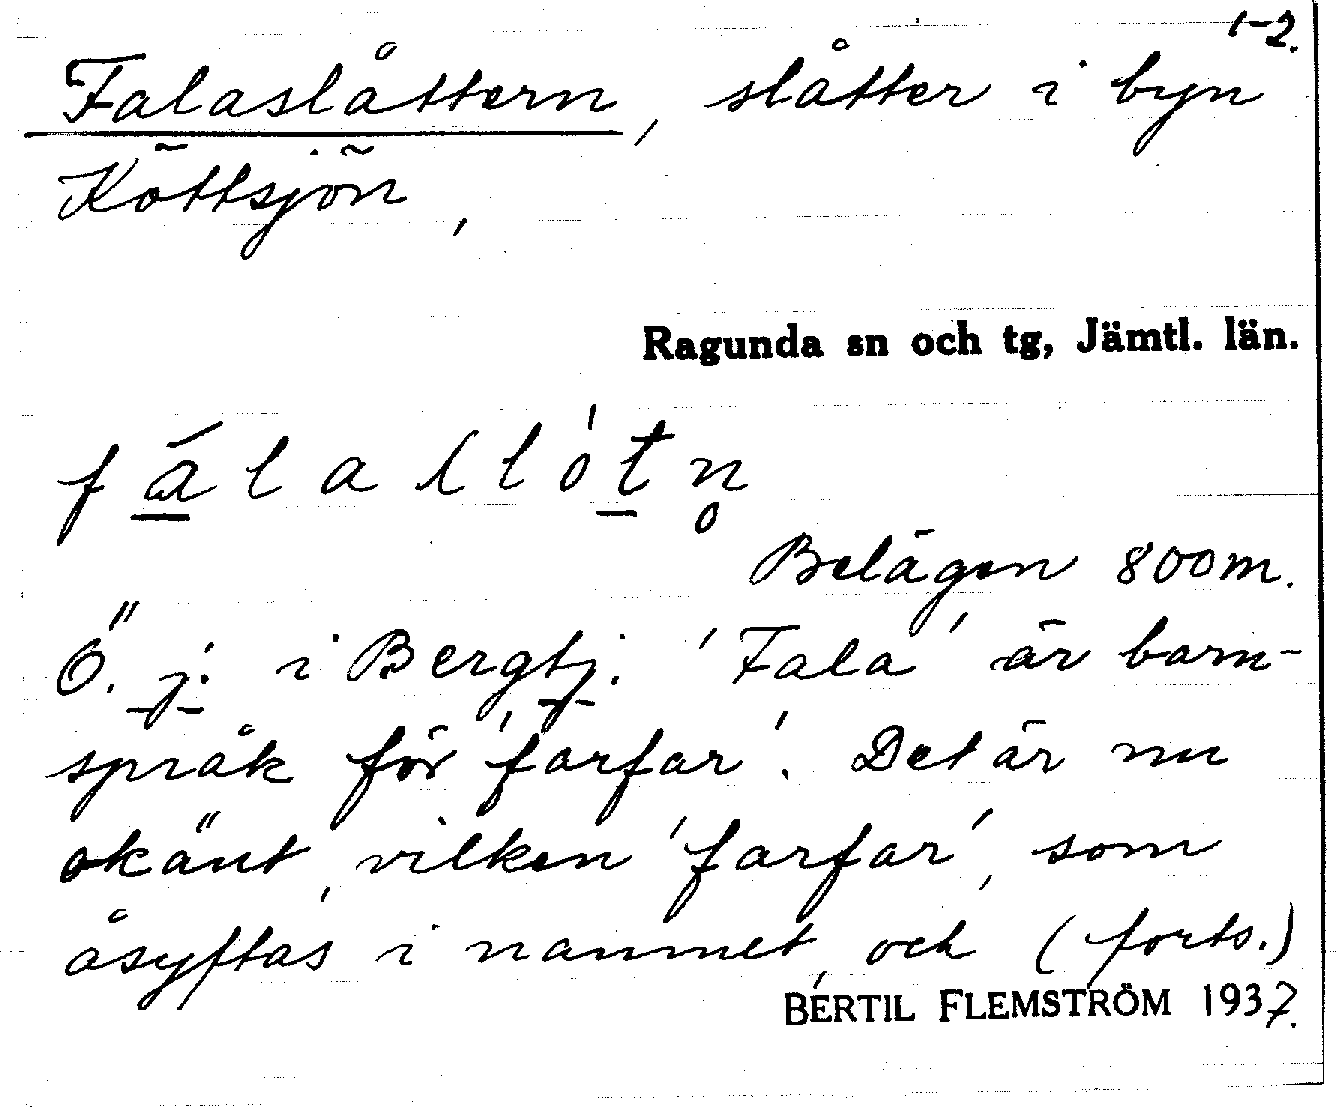 1-2.
Falaslåttern, slåtter i byn
Köttsjön,
Ragunda sn och tg, Jämtl. län.
Belägen 800m.
Ö. j. i Bergtj. 'Fala' är barn-
språk för 'farfar'. Det är nu
okänt, vilken 'farfar', som
åsyftas i namnet, och (forts.)
BERTIL FLEMSTRÖM 1937.